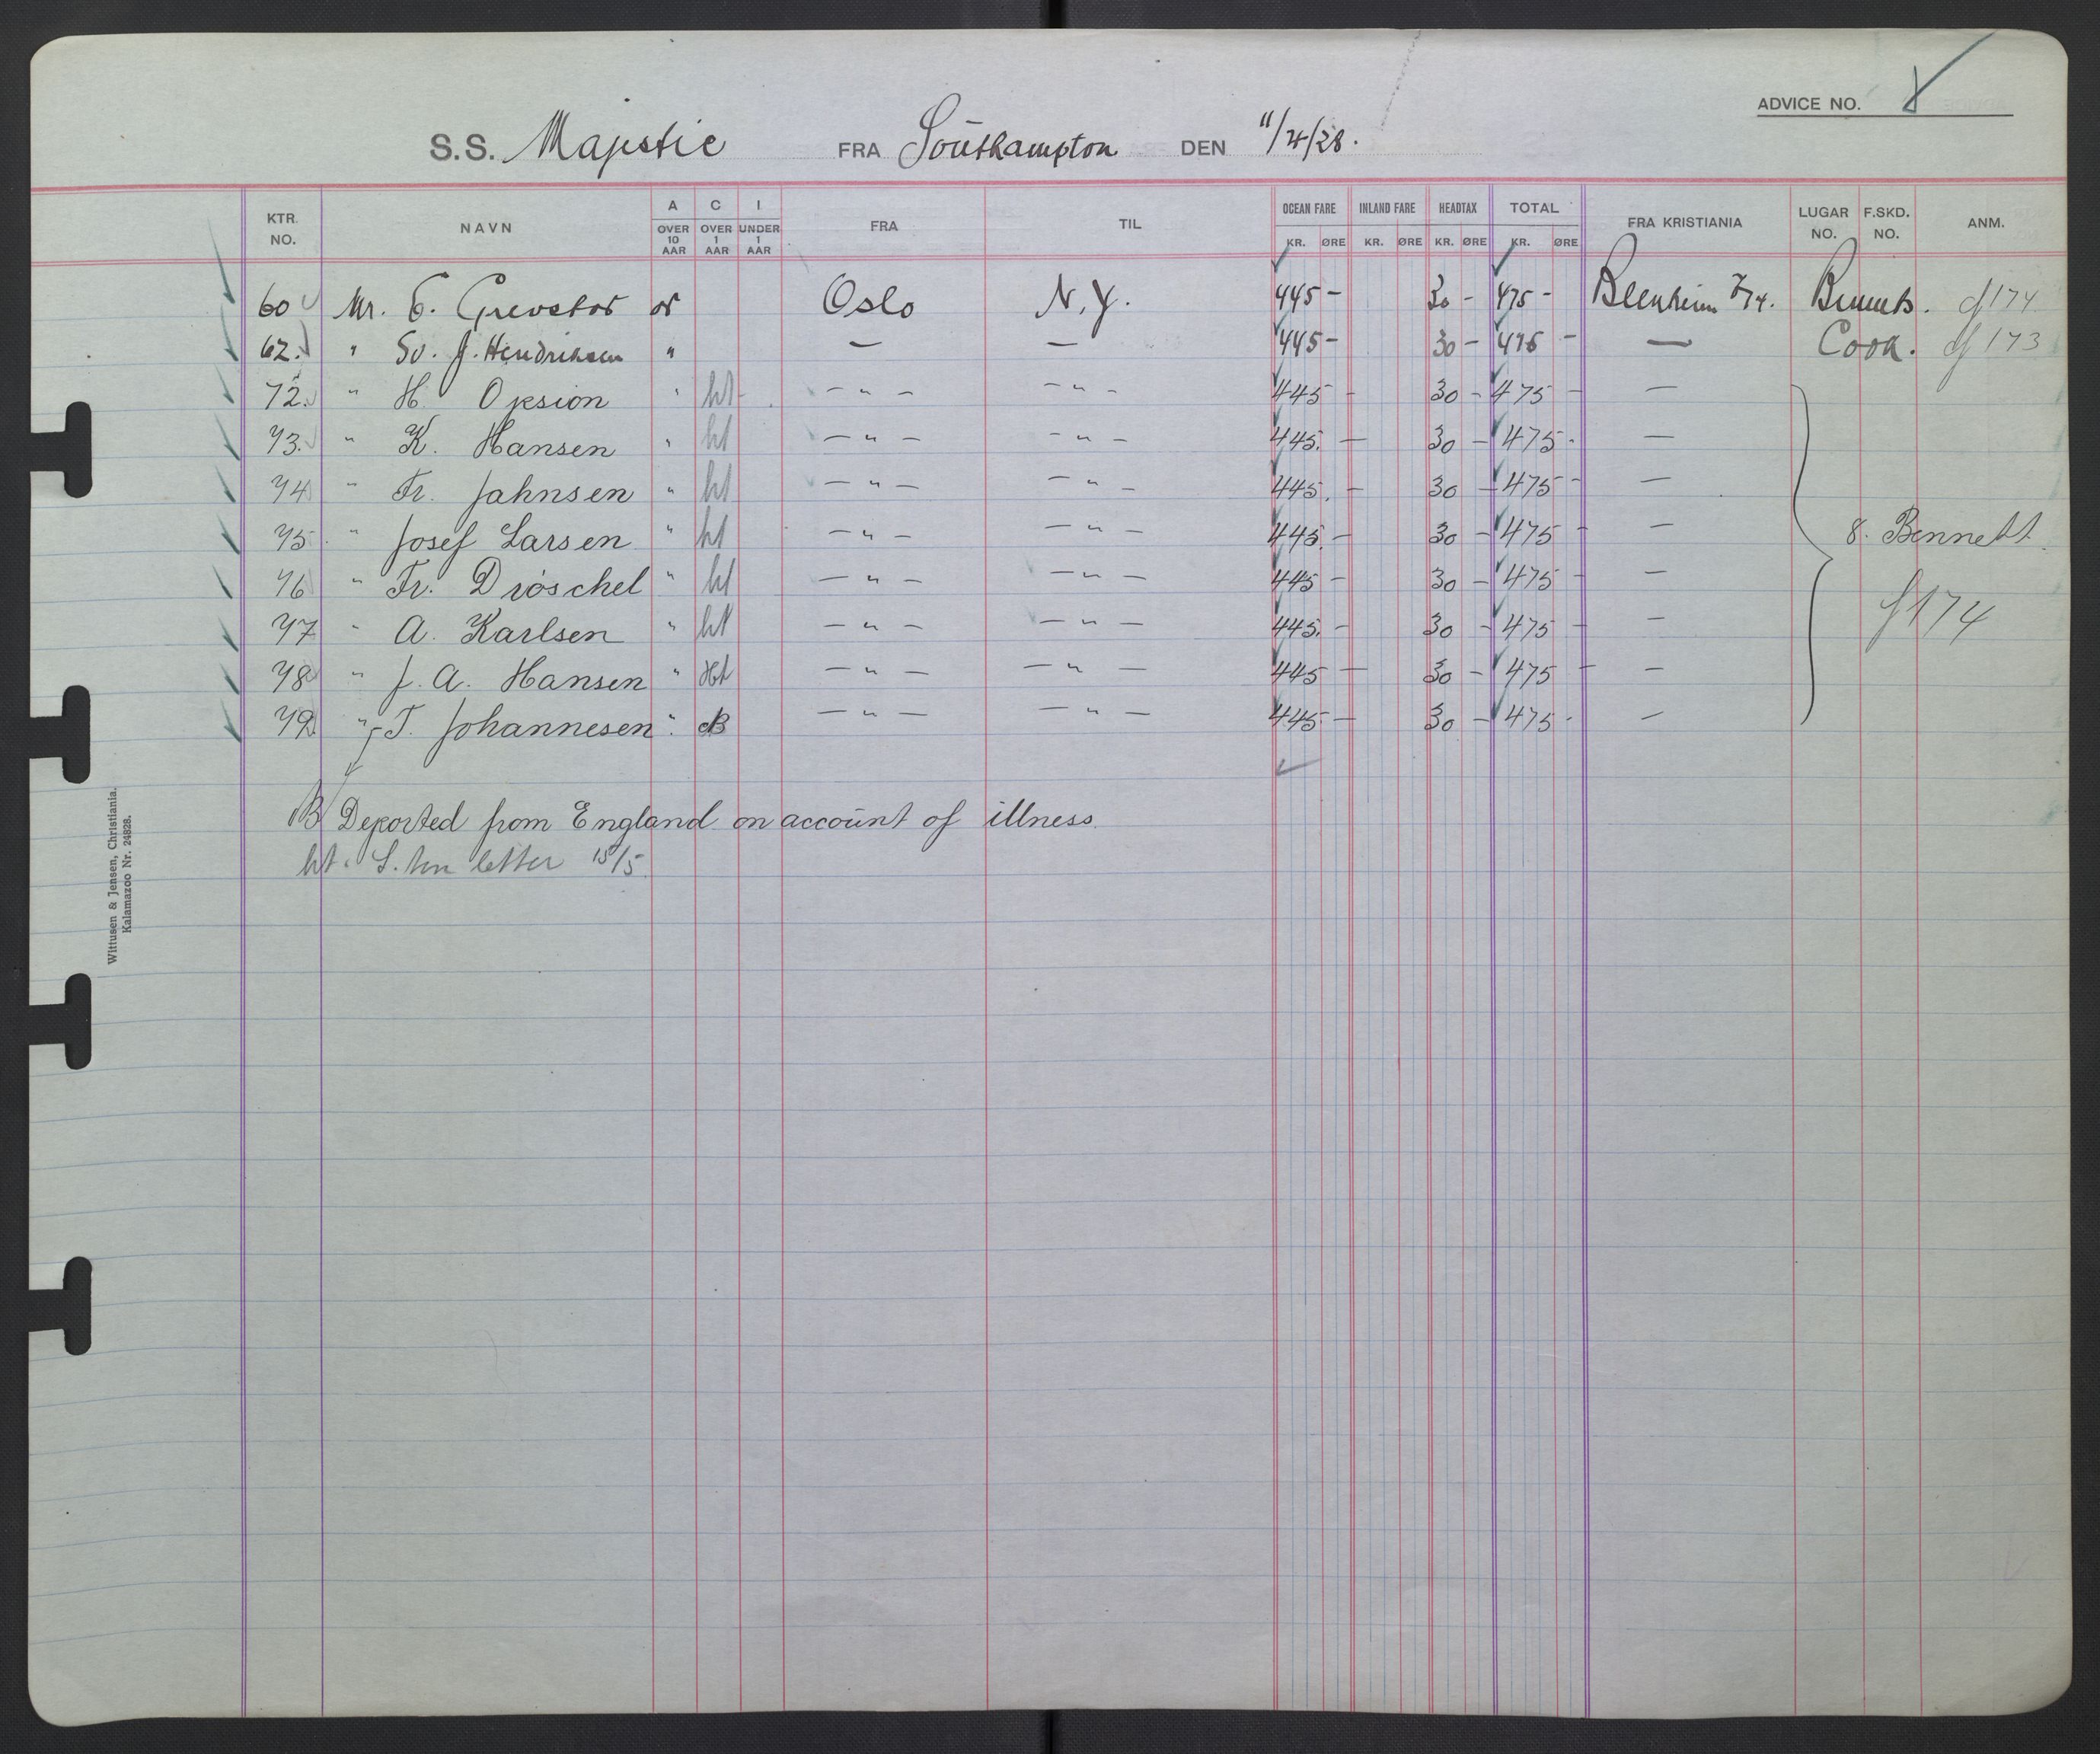 ADVICE NO.
S.S. Majestic FRA Southampton DEN 11/4/28.
KTR. NO. NAVN A OVER 10 AAR C OVER 1 AAR I UNDER 1 AAR FRA TIL OCEAN FARE KR. ØRE INLAND FARE KR. ØRE HEADTAX KR. ØRE TOTAL KR. ØRE FRA KRISTIANIA LUGAR NO. F.SKD. NO. ANM.
60 Mr. E. Grevstad Oslo N.Y. 445 - 30 - 475 - Blenheim 7/4. Bennets. f 174
62. " Sv. J. Hendriksen " — — 445 - 30 - 475 - — Cook. f 173
72. " H. Opsion " ht - " - - " - 445 - 30 - 475 - —
73. " K. Hansen " ht - " - - " - 445. - 30 - 475 - —
74 " Fr. Jahnsen " ht - " - - " - 445. - 30 - 475 - —
75 " Josef Larsen " ht - " - - " - 445. - 30 - 475 - — 8. Bennett.
76 " Fr. Dröschel " ht - " - - " - 445 - 30 - 475 - —
77 " A. Karlsen " ht - " - - " - 445. - 30 - 475 - — f 174
78 " J. A. Hansen " ht - " - - " - 445 - 30 - 475 - —
79. " T. Johannesen " B - " - - " - 445 - 30 - 475 - —
B Deported from England on account of illness.
ht. letter 15/5.
Wittusen & Jensen, Christiania.
Kalamazoo Nr. 24828.